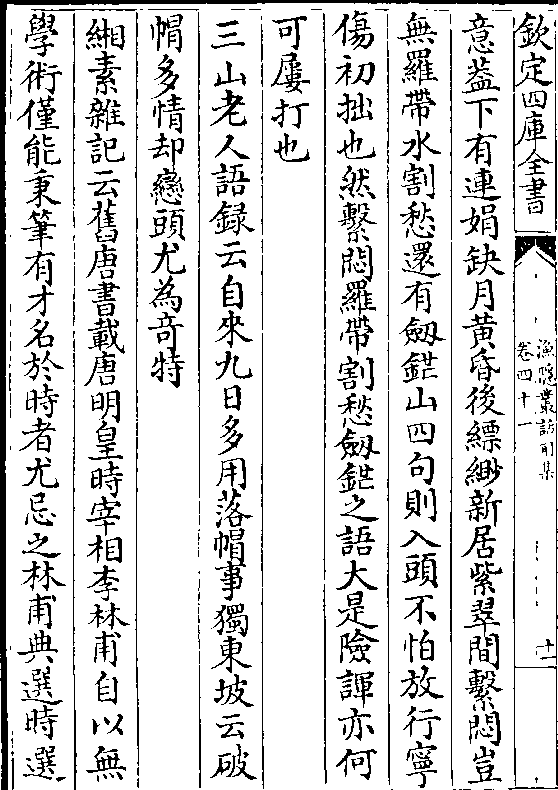 欽定四庫全書
漁隱叢話前集
卷四十一
十一
意葢下有連娟缺月黄昏後縹緲新居紫翠間繫悶豈
無羅帶水割愁還有劔鋩山四句則入頭不怕放行寧
傷初拙也然繫悶羅帶割愁劔鋩之語大是險諢亦何
可屢打也
三山老人語録云自來九日多用落帽事獨東坡云破
帽多情却戀頭尤為竒特
緗素雜記云舊唐書載唐明皇時宰相李林甫自以無
學術僅能秉筆有才名於時者尤忌之林甫典選時選